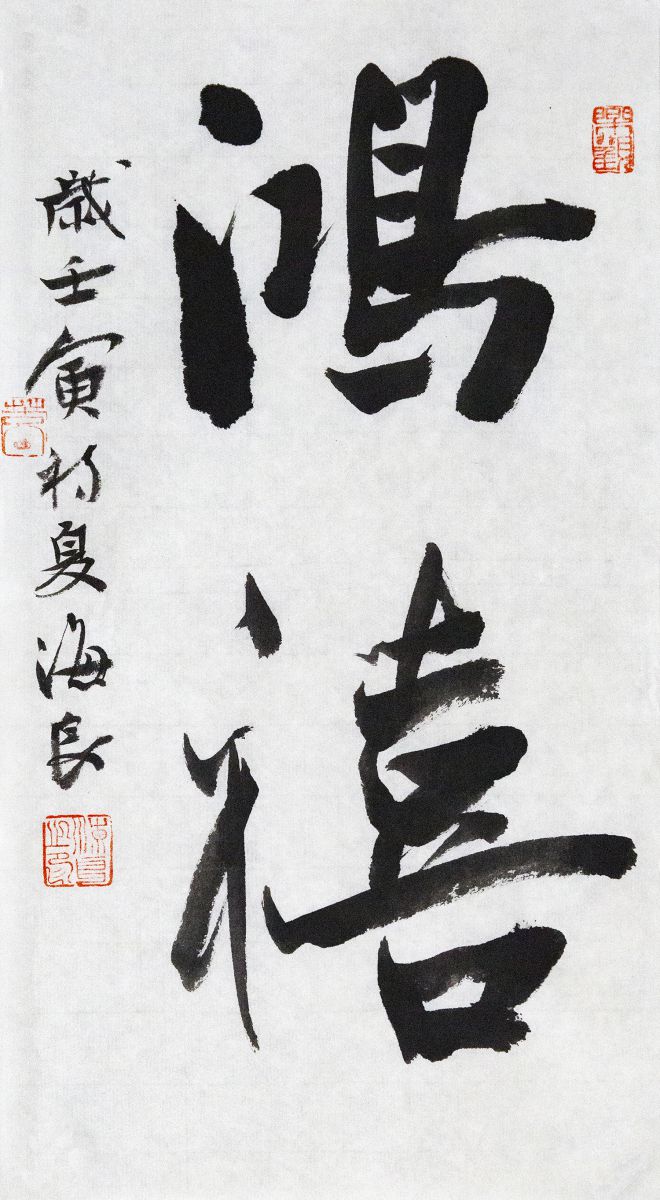 鴻禧
歲壬寅初夏海良